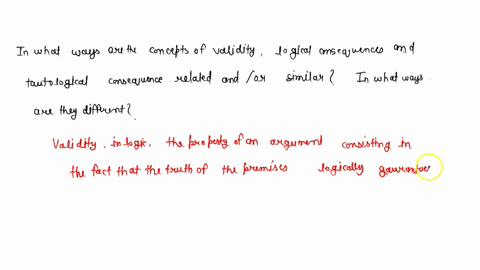 In what ways are the concepts of validity, logical consequences and
tautological consequence related and/or similar? In what ways
are they different?
Validity, in logic, the property of an argument consisting in
the fact that the truth of the premises logically gaurantee